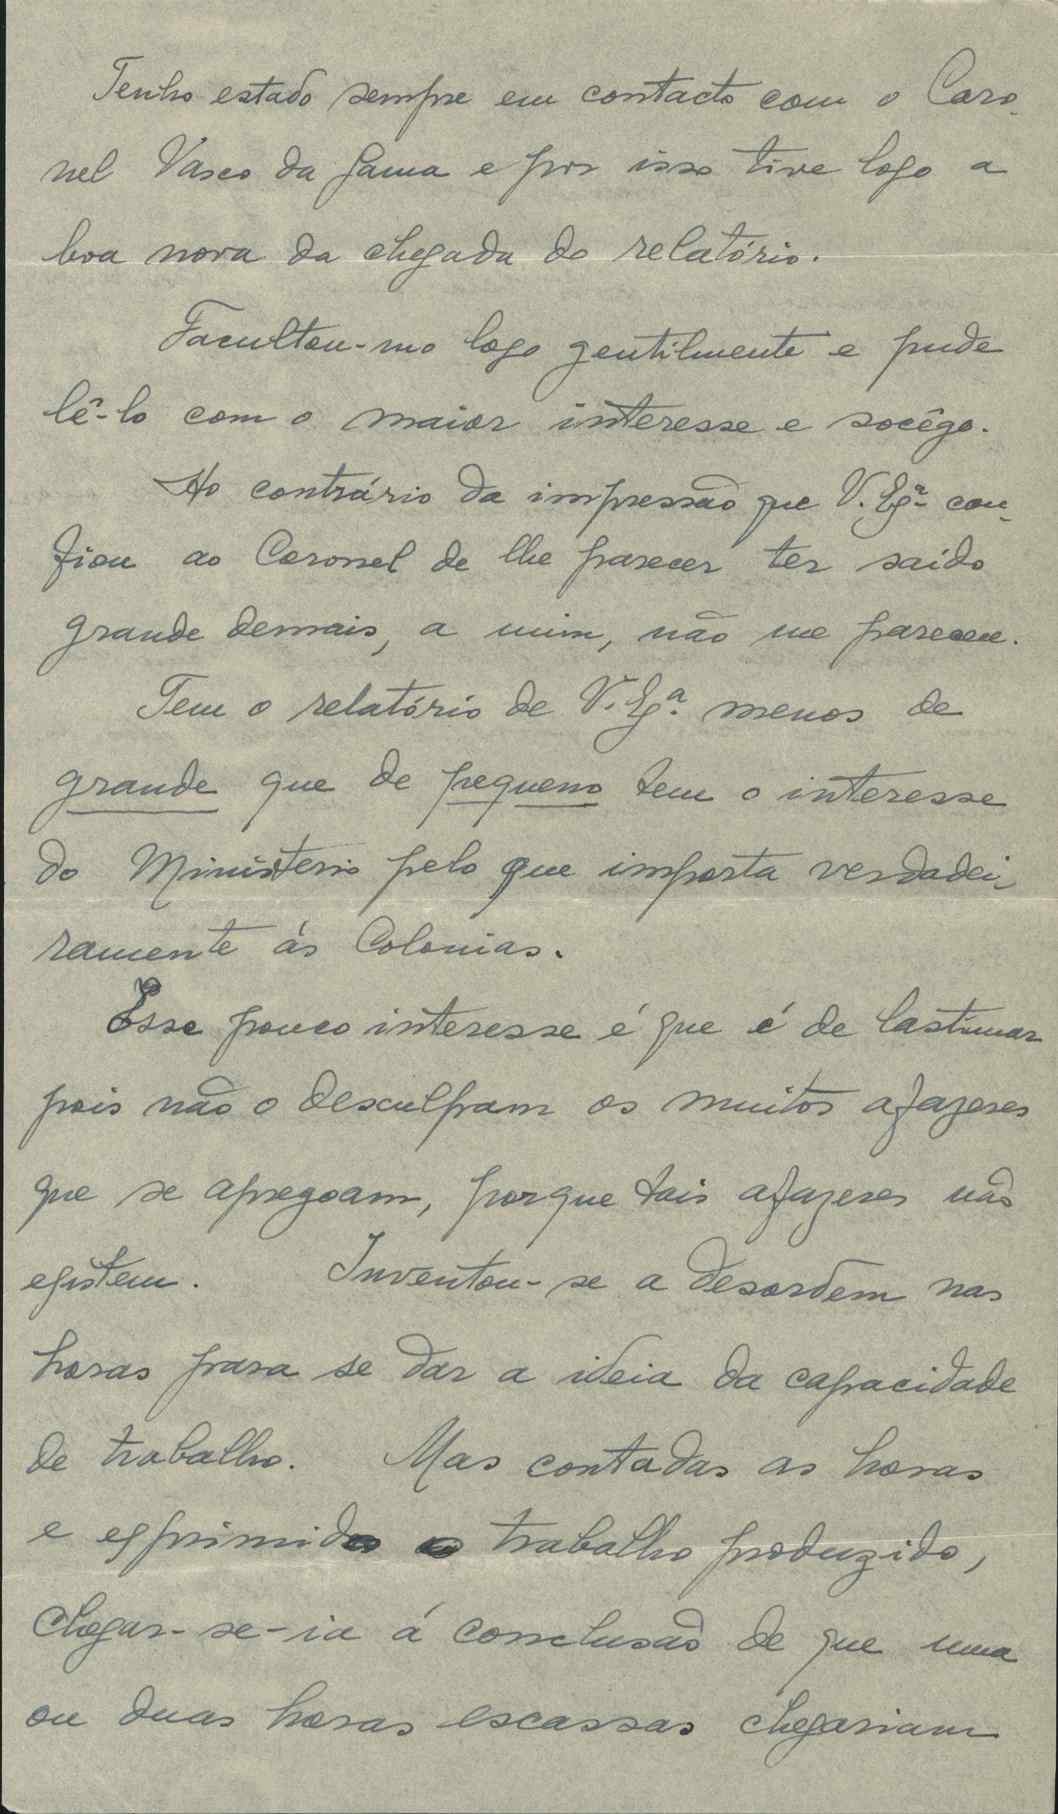 Tenho estado sempre em contacto com o Coro-
nel Vasco da Gama e por isso tive logo a
boa nova da chegada do relatório.
Facultou-mo logo gentilmente e pude
lê-lo com o maior interesse e socêgo.
Ao contrário da impressão que V. Exª con-
fiou ao Coronel de lhe parecer ter saido
grande demais, a mim, não me pareceu.
Tem o relatório de V. Exª. menos de
grande que de pequeno tem o interesse
do Ministerio pelo que importa verdadei-
ramente ás Colonias.
Esse pouco interesse é que é de lastimar
pois não o desculpam os muitos afazeres
que se apregoam, porque tais afazeres não
existem. Inventou-se a desordem nas
horas para se dar a ideia da capacidade
de trabalho. Mas contadas as horas
e exprimido o trabalho produzido,
chegar-se-ia á conclusão de que uma
ou duas horas escassas chegariam